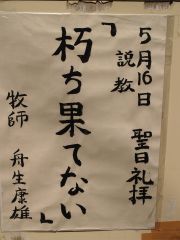 5月16日 聖日礼拝
説教
「朽ち果てない」
牧師 舟生康雄